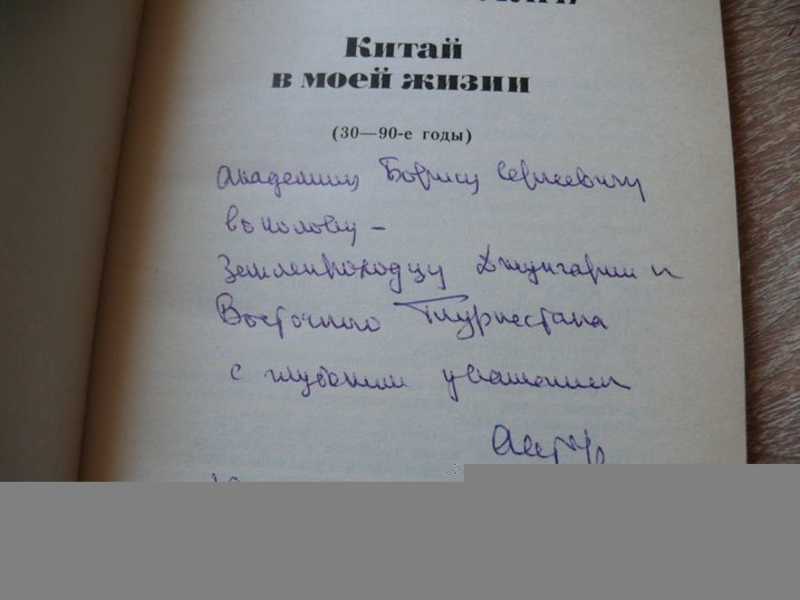 Китай
в моей жизни
(30—90-е годы)
Академику Борису Сергеевичу
Соколову –
Землепроходцу Джунгарии и
Восточного Туркестана
с глубоким уважением
Автор